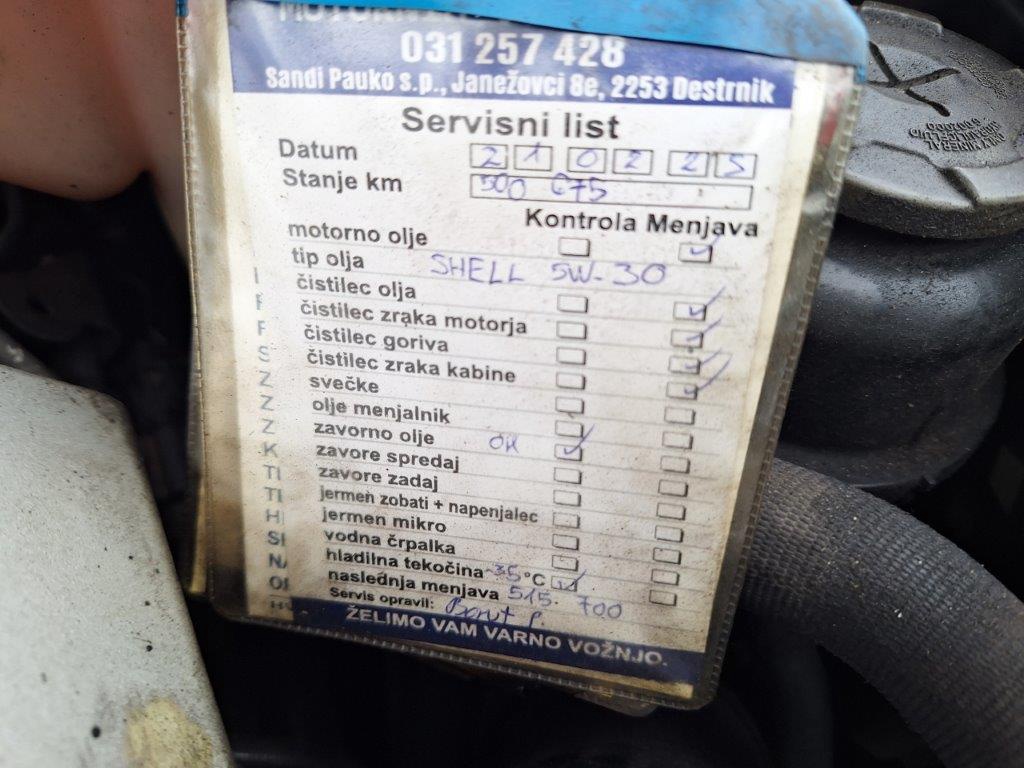 031 257 428
Sandi Pauko s.p., Janežovci 8e, 2253 Destrnik
Servisni list
Datum 21 02 25
Stanje km 500 675
Kontrola Menjava
motorno olje
tip olja SHELL 5W-30
čistilec olja
čistilec zraka motorja
čistilec goriva
čistilec zraka kabine
svečke
olje menjalnik
zavorno olje OK
zavore spredaj
zavore zadaj
jermen zobati + napenjalec
jermen mikro
vodna črpalka
hladilna tekočina -35 °C
naslednja menjava 515.700
Servis opravil: Borut P.
ŽELIMO VAM VARNO VOŽNJO.